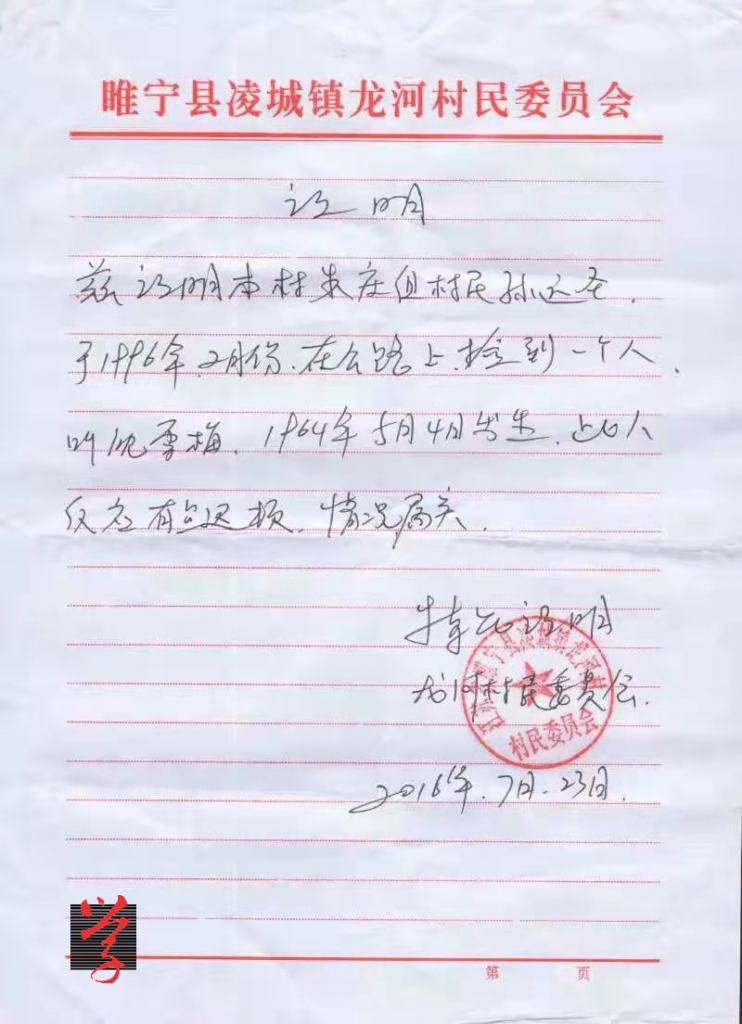 睢宁县凌城镇龙河村民委员会
证明
兹证明本村朱庄组村民孙达圣,
于1996年.2月份.在公路上.捡到一个人.
叫沈雪梅.1964年5月4日出生.此人
反应有些迟顿.情况属实.
特此证明
龙河村民委员会.
睢宁县凌城镇龙河
村民委员会
2016年.7月.23日.
学
第 页